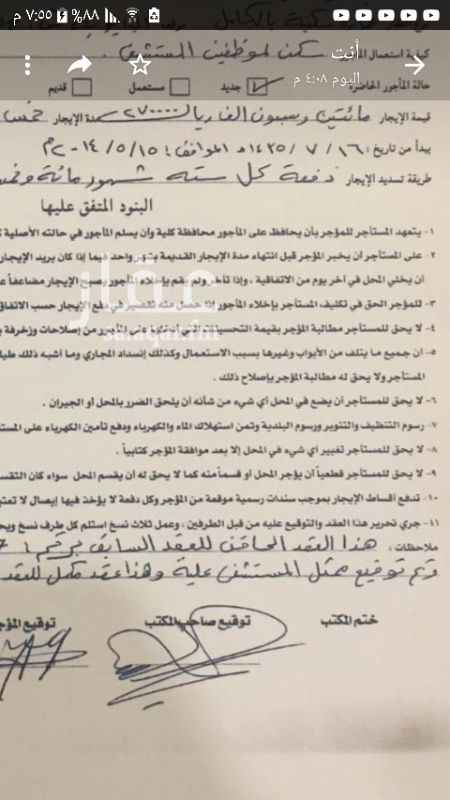 م ٧:٥٥ ٨٨%
أنت
اليوم ٤:٠٨ م
كيفية استعمال سكن لموظفين المستشفى .
حالة المأجور الحاضرة جديد مستعمل قديم
قيمة الإيجار مائتين وسبعون الف ريال ٢٧٠٠٠٠ مدة الإيجار خمس
يبدأ من تاريخ : ١٦ / ٧ / ١٤٣٥هـ الموافق : ١٥ / ٥ / ٢٠١٤م
طريقة تسديد الإيجار دفعة كل ستة شهور مائة وخمس
البنود المتفق عليها
١- يتعهد المستأجر للمؤجر بأن يحافظ على المأجور محافظة كلية وأن يسلم المأجور في حالته الأصلية
٢- على المستأجر أن يخبر المؤجر قبل انتهاء مدة الإيجار القديمة بشهر واحد فيما إذا كان يريد الإيجار
أن يخلي المحل في آخر يوم من الاتفاقية ، وإذا تأخر ولم يقم بإخلاء المأجور يصبح الإيجار مضاعفاً
٣- للمؤجر الحق في تكليف المستأجر بإخلاء المأجور إذا حصل منه تقصير في دفع الإيجار حسب الاتفاق
٤- لا يحق للمستأجر مطالبة المؤجر بقيمة التحسينات التي أدخلها على المأجور من إصلاحات وزخرفة
٥- أن جميع ما يتلف من الأبواب وغيرها بسبب الاستعمال وكذلك إنسداد المجاري وما أشبه ذلك
المستأجر ولا يحق له مطالبة المؤجر بإصلاح ذلك .
٦- لا يحق للمستأجر أن يضع في المحل أي شيء من شأنه أن يلحق الضرر بالمحل أو الجيران .
٧- رسوم التنظيف والتنوير ورسوم البلدية وثمن استهلاك الماء والكهرباء ودفع تأمين الكهرباء على
٨- لا يحق للمستأجر تغيير أي شيء في المحل إلا بعد موافقة المؤجر كتابياً .
٩- لا يحق للمستأجر قطعياً أن يؤجر المحل أو قسماً منه كما لا يحق له أن يقسم المحل سواء كان
١٠- تدفع أقساط الإيجار بموجب سندات رسمية موقعة من المؤجر وكل دفعة لا يؤخذ فيها إيصال لا
١١- جرى تحرير هذا العقد والتوقيع عليه من قبل الطرفين ، وعمل ثلاث نسخ استلم كل طرف نسخ
ملاحظات : هذا العقد الحاقن للعقد السابق برقم :
وتم توقيع ممثل المستشفى عليه وهذا عقد مكمل للعقد
ختم المكتب توقيع صاحب المكتب توقيع المؤجر
عقار
saaqar.fm